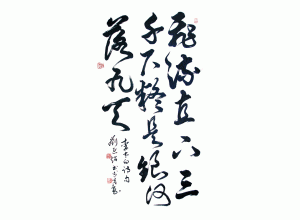 飞流直下三
千尺疑是银河
落九天
李太白诗句